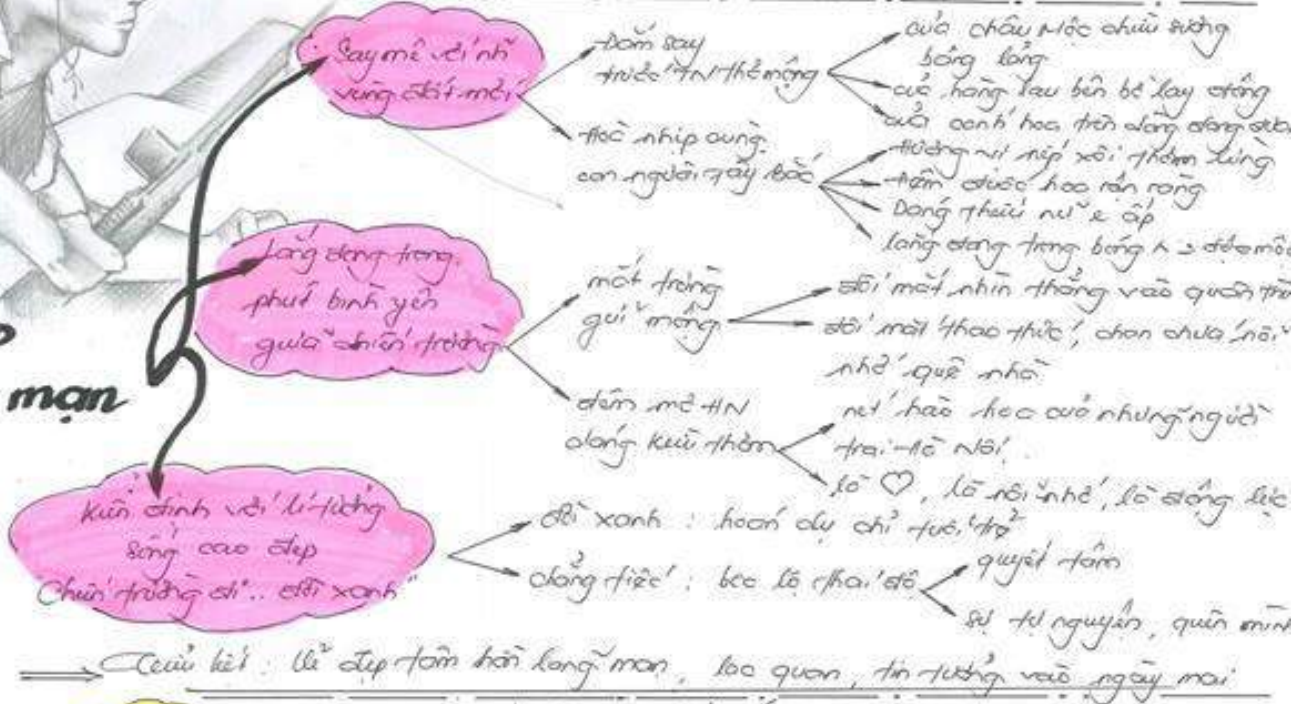 Say mê với n~
vùng đất mới
Đắm say
trước TN thơ mộng
của Châu Mộc chiều sương
bảng lảng
của hàng lau bên bờ lay động
của cánh hoa trên dòng đong đưa
Hoà nhịp cùng
con người Tây Bắc
Hương vị nếp xôi thơm lừng
Đêm đuốc hoa rộn ràng
Dáng thiếu nữ e ấp
lắng đọng trong bóng h
lắng đọng trong
phút bình yên
giữa chiến trường
mắt trừng
gửi mộng
đôi mắt nhìn thẳng vào quân thù
đôi mắt thao thức, chan chứa nỗi
nhớ quê nhà
mạn
đêm mơ HN
dáng kiều thơm
nét hào hoa của những người
trai Hà Nội
là ♡, là nỗi nhớ, là động lực
Kiên định với lí tưởng
sống cao đẹp
"Chiến trường đi .. đời xanh"
đời xanh : hoán dụ chỉ tuổi trẻ
chẳng tiếc : bộc lộ thái độ
quyết tâm
sự tự nguyện, quên mình
Tiểu kết : Vẻ đẹp tâm hồn lãng mạn, lạc quan, tin tưởng vào ngày mai